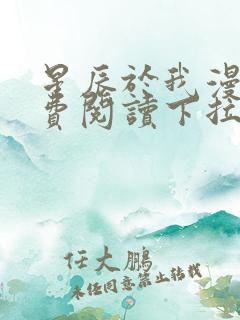 星辰於我漫
費閱讀下拉
任大鹏
未经同意禁止转载